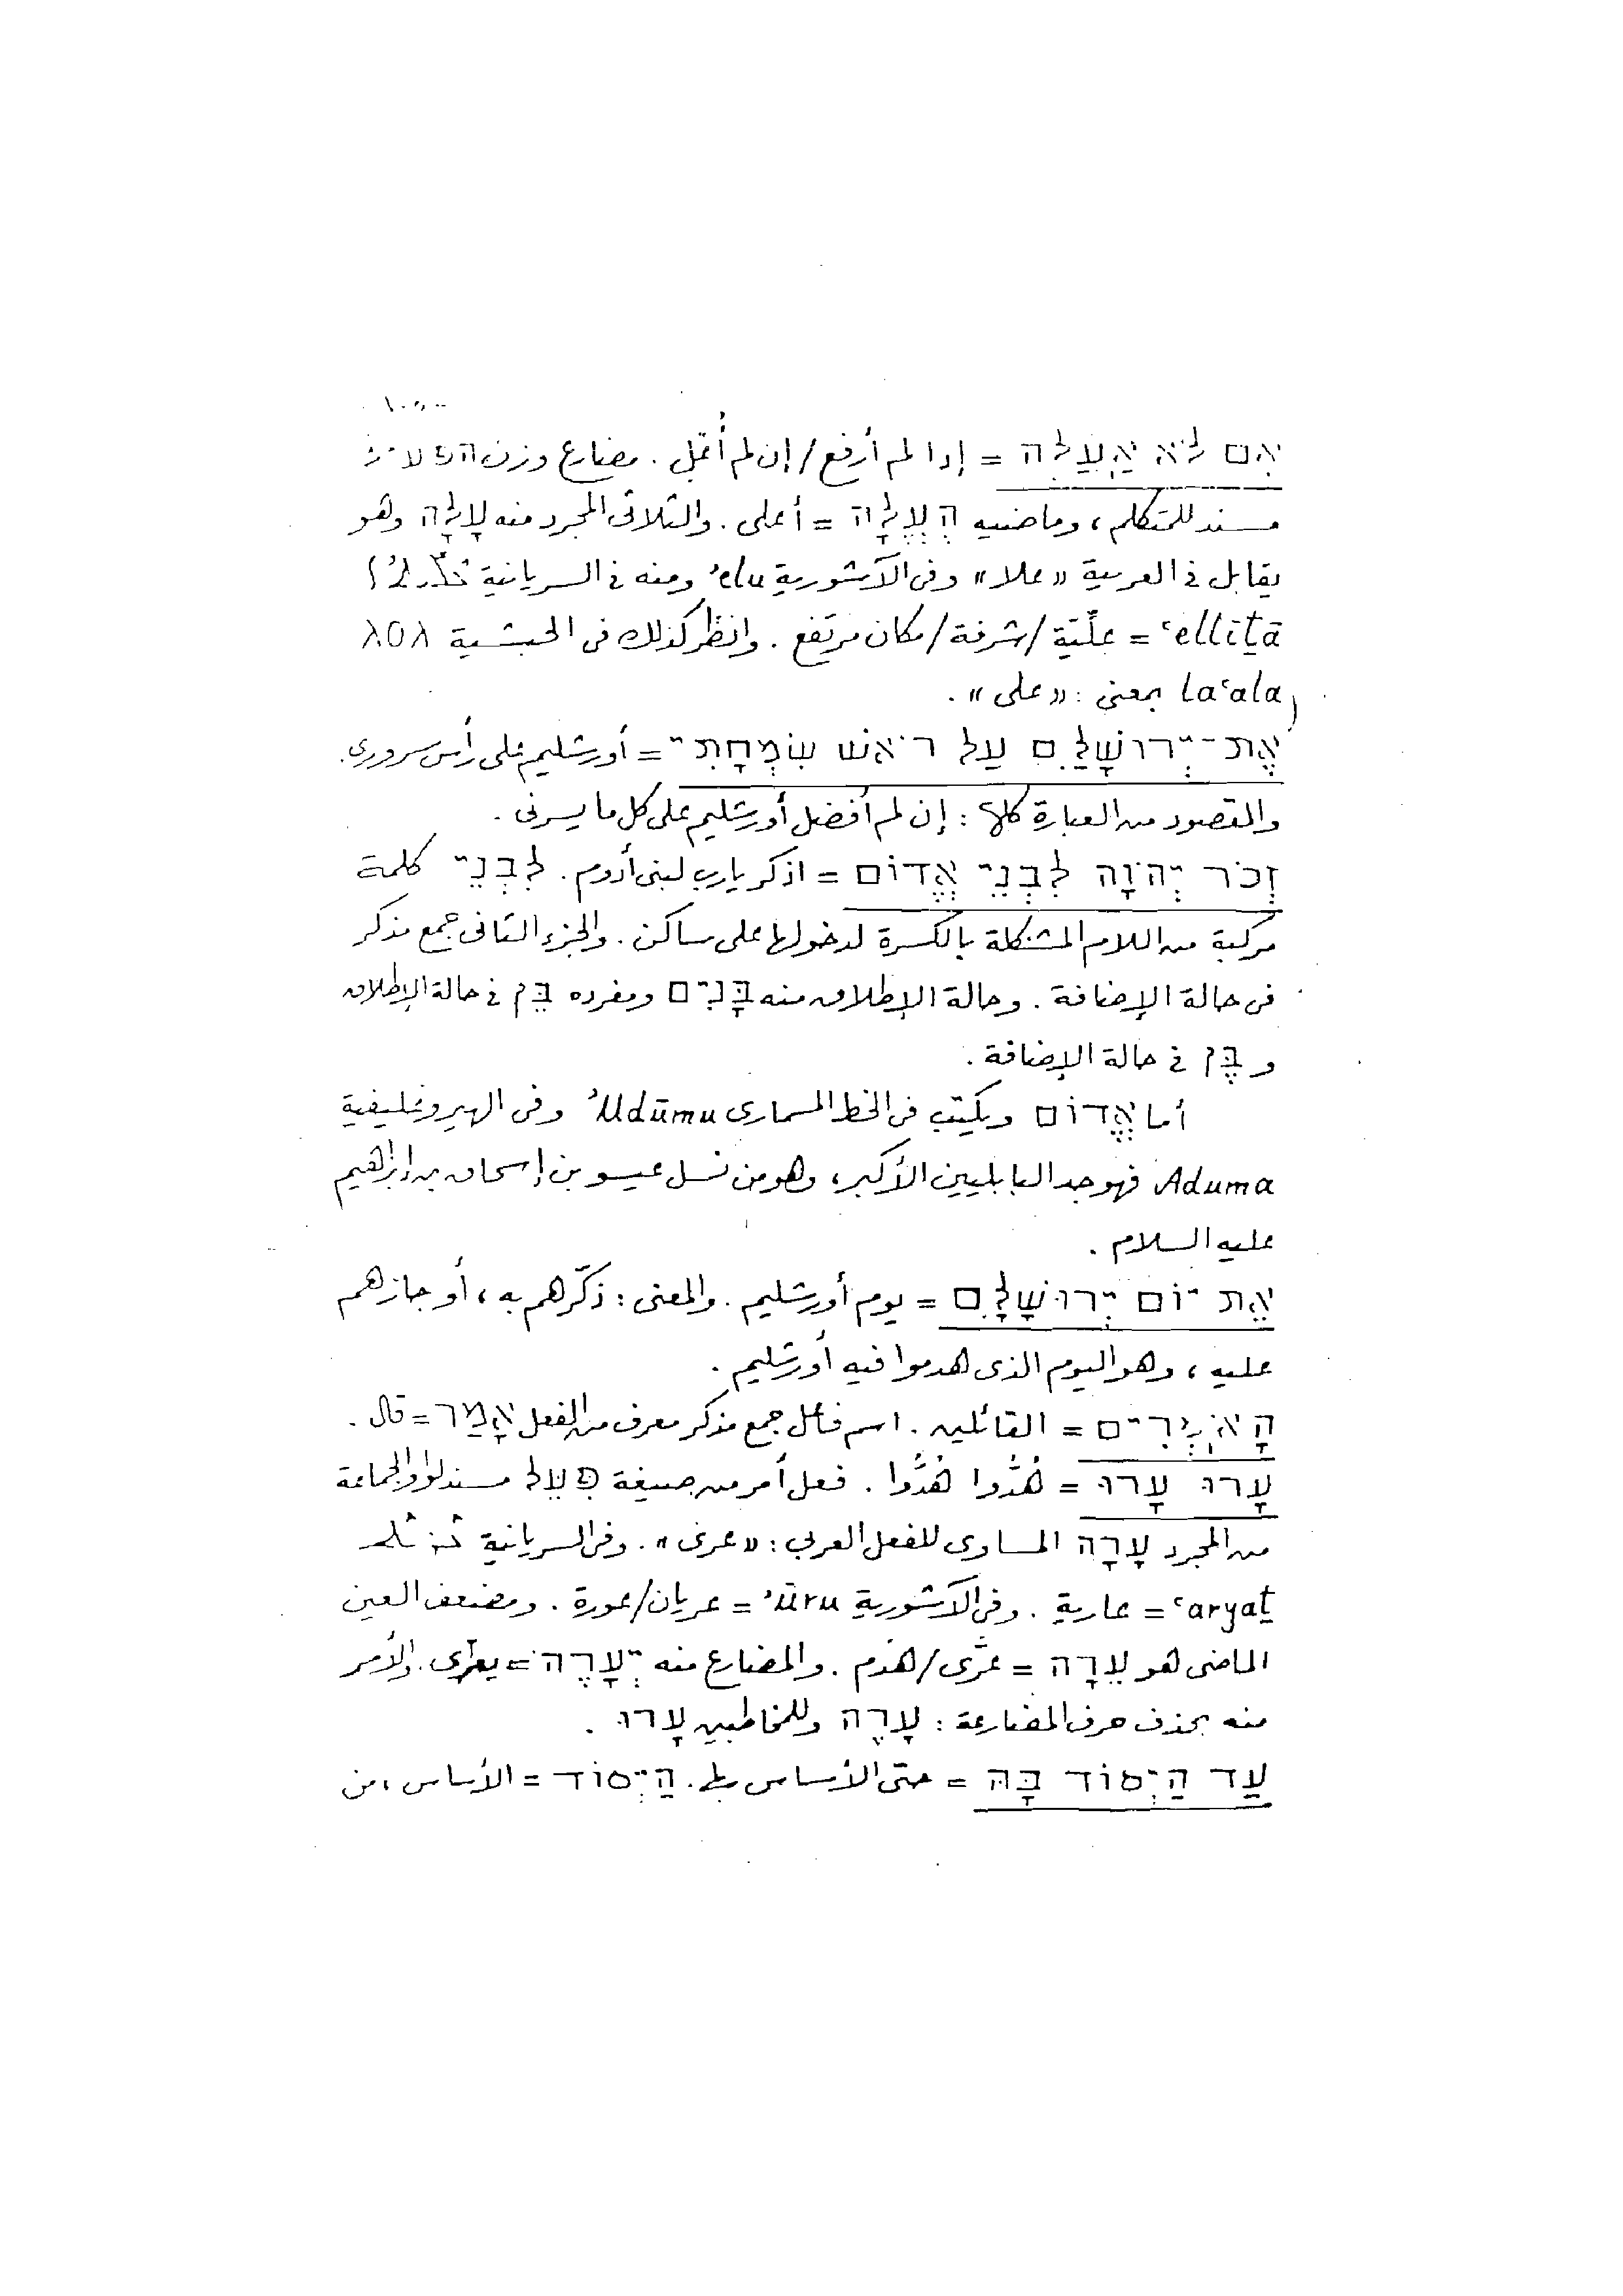 אִם לֹא אַעֲלֶה = إذا لم أرفع / إن لم أُعَلِّ . مضارع وزن הפעיל
مسند للمتكلم ، وماضيه הֶעֱלָה = أعلى . والثلاثي المجرد منه עָלָה وهو
يقابل في العربية «علا» وفي الآشورية elu' ومنه في السريانية
ʿelliṯā = علّيّة / شرفة / مكان مرتفع . وانظر كذلك في الحبشية ለዐለ
laʿala بمعنى : «على» .
אֶת-יְרוּשָׁלַיִם עַל רֹאשׁ שִׂמְחָתִי = أورشليم على رأس سروري .
والمقصود من العبارة كلها : إن لم أفضل أورشليم على كل ما يسرني .
זְכֹר יְהוָה לִבְנֵי אֱדוֹם = اذكر يارب لبني أدوم . לִבְנֵי كلمة
مركبة من اللام المشكلة بالكسرة لدخولها على ساكن . والجزء الثاني جمع مذكر
في حالة الإضافة . وحالة الإطلاق منه בָּנִים ومفرده בֵּן في حالة الإطلاق
و בֶּן في حالة الإضافة .
أما אֱדוֹם ويكتب في الخط المسماري Udūmu' وفي الهيروغليفية
Aduma فهو جد البابليين الأكبر ، وهو من نسل عيسو بن إسحاق بن إبراهيم
عليه السلام .
אֵת יוֹם יְרוּשָׁלָיִם = يوم أورشليم . والمعنى : ذكّرهم به ، أو جازهم
عليه ، وهو اليوم الذي هدموا فيه أورشليم .
הָאֹמְרִים = القائلين . اسم فاعل جمع مذكر معرف من الفعل אָמַר = قال .
עָרוּ עָרוּ = هُدُّوا هُدُّوا . فعل أمر من صيغة פִּעֵל مسند لواو الجماعة
من المجرد עָרָה المساوي للفعل العربي : «عرى» . وفي السريانية
ʿaryaṯ = عارية . وفي الآشورية ūru' = عريان / عورة . ومضعف العين
الماضي هو עֵרָה = عرّى / هدم . والمضارع منه יְעָרֶה = يعرّي . والأمر
منه بحذف حرف المضارعة : עָרֶה وللمخاطبين עָרוּ .
עַד הַיְסוֹד בָּהּ = حتى الأساس بها . הַיְסוֹד = الأساس ، من